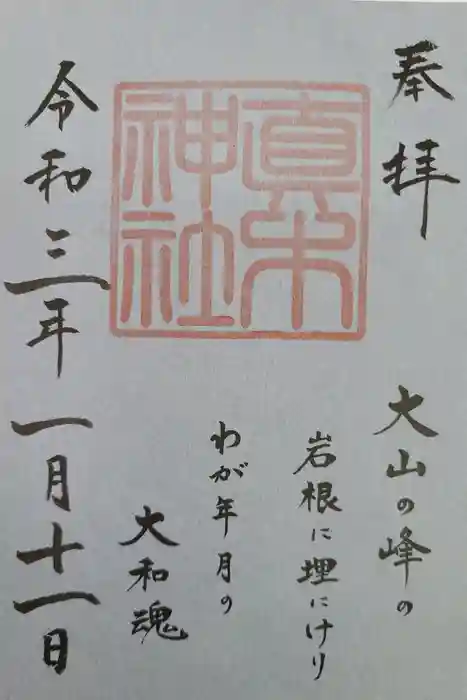 奉拝
眞木
神社
大山の峰の
岩根に埋にけり
わが年月の
大和魂
令和三年一月十一日